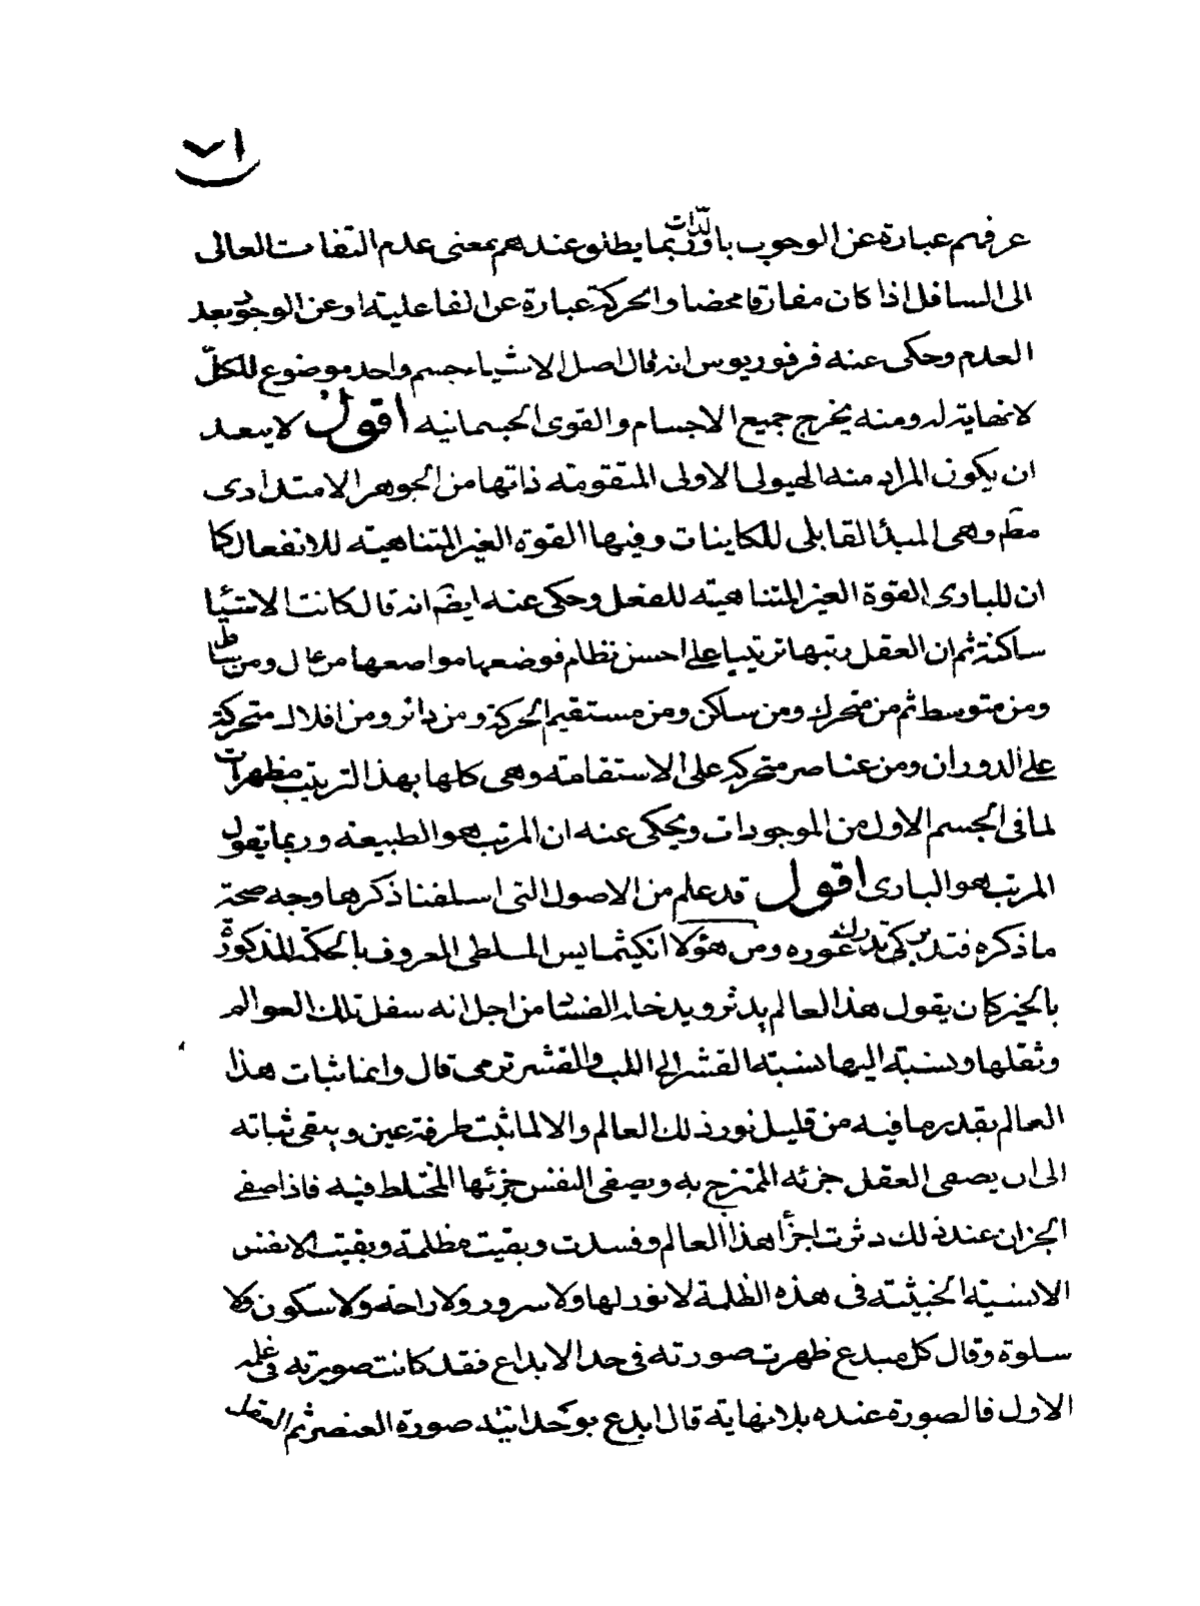 ٧١
عرفهم عبارة عن الوجوب بالذات وربما يطلق عندهم بمعنى عدم التفات العالى
الى السافل اذا كان مفارقا محضا والحركة عبارة عن الفاعلية او عن الوجود بعد
العدم وحكى عنه فرفوريوس انه قال اصل الاشياء جسم واحد موضوع للكلّ
لا نهاية له ومنه يخرج جميع الاجسام والقوى الجسمانيه اقول لا يبعد
ان يكون المراد منه الهيولى الاولى المتقومة ذاتها من الجوهر الامتدادى
مطم وهى المبدأ القابلى للكاينات وفيها القوة الغير المتناهيته للانفعال كما
ان للبارى القوة الغير المتناهيته للفعل وحكى عنه ايضم انه قال كانت الاشيا
ساكنة ثم ان العقل رتبها ترتيبا على احسن نظام فوضعها مواضعها من عال ومن سافل
ومن متوسط ثم من متحرك ومن ساكن ومن مستقيم الحركة ومن دائر ومن افلاك متحركة
على الدوران ومن عناصر متحركة على الاستقامة وهى كلها بهذا الترتيب مظهرات
لما فى الجسم الاول من الموجودات ويحكى عنه ان المرتب هو الطبيعه وربما يقول
المرتب هو البارى اقول قد علم من الاصول التى اسلفنا ذكرها وجه صحة
ما ذكره فتدبر كى تدرك غوره ومن هؤلا انكيثمايس الملطى المعروف بالحكمة المذكورة
بالخير كان يقول هذا العالم يدثر ويدخله الفساد من اجل انه سفل تلك العوالم
وثقلها ونسبته اليها نسبته القشر الى اللب والقشر ترمى قال وانما ثبات هذا
العالم بقدر ما فيه من قليل نور ذلك العالم والا لما ثبت طرفة عين ويبقى ثباته
الى ان يصفى العقل جزئه الممتزج به ويصفى النفس جزئها المختلط فيه فاذا صفى
الجزان عند ذلك دثرت اجزأ هذا العالم وفسدت وبقيت مظلمة وبقيت الانفس
الانسية الخبيثته فى هذه الظلمة لا نور لها ولا سرور ولا راحة ولا سكون ولا
سلوة وقال كل مبدع ظهرت صورته فى حد الابداع فقد كانت صورته فى علمه
الاول فالصورة عنده بلا نهاية قال ابدع بوحدانيته صورة العنصر ثم العقل